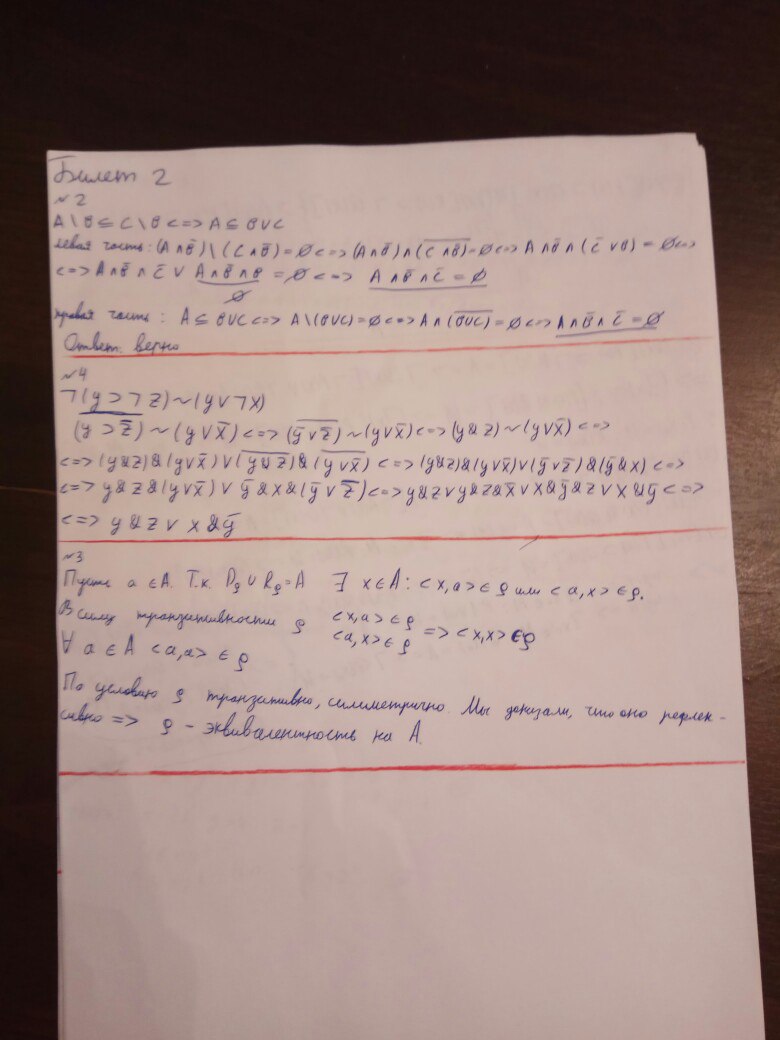 Билет 2
№2
A \ B ⊆ C \ B <=> A ⊆ B ∪ C
левая часть: (A ∩ B̅) \ (C ∩ B̅) = ∅ <=> (A ∩ B̅) ∩ (C̅ ∩ B̅̅) = ∅ <=> A ∩ B̅ ∩ (C̅ ∪ B) = ∅ <=>
<=> A ∩ B̅ ∩ C̅ ∪ A ∩ B̅ ∩ B = ∅ <=> A ∩ B̅ ∩ C̅ = ∅
∅
правая часть: A ⊆ B ∪ C <=> A \ (B ∪ C) = ∅ <=> A ∩ (B̅ ∪̅ C̅) = ∅ <=> A ∩ B̅ ∩ C̅ = ∅
Ответ: верно
№4
¬(y ⊃ ¬z) ~ (y ∨ ¬x)
(y ⊃ z̅) ~ (y ∨ x̅) <=> (y̅ ∨ z̅) ~ (y ∨ x̅) <=> (y & z) ~ (y ∨ x̅) <=>
<=> (y & z) & (y ∨ x̅) ∨ (y̅ &̅ z̅) & (y̅ ∨̅ x̅) <=> (y & z) & (y ∨ x̅) ∨ (y̅ ∨ z̅) & (y̅ & x) <=>
<=> y & z & (y ∨ x̅) ∨ y̅ & x & (y̅ ∨ z̅) <=> y & z ∨ y & z & x̅ ∨ x & y̅ & z ∨ x & y̅ <=>
<=> y & z ∨ x & y̅
№3
Пусть a ∈ A. Т.к. Dρ ∪ Rρ = A ∃ x ∈ A: <x,a> ∈ ρ или <a,x> ∈ ρ.
В силу транзитивности ρ <x,a> ∈ ρ
<a,x> ∈ ρ => <x,x> ∈ ρ
∀ a ∈ A <a,a> ∈ ρ
По условию ρ транзитивно, симметрично. Мы доказали, что оно рефлек-
сивно => ρ - эквивалентность на A.